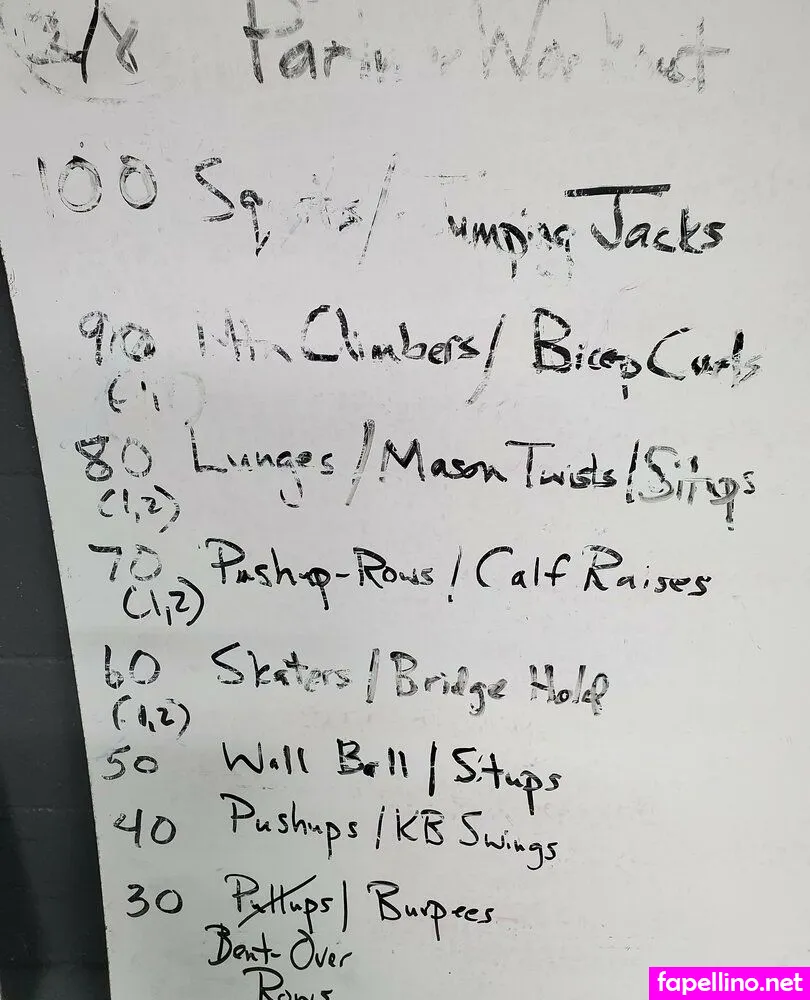 3/8 Partner Workout
100 Squats / Jumping Jacks
90 Mtn Climbers / Bicep Curls
(1,
80 Lunges / Mason Twists / Situps
(1,2)
70 Pushup-Rows / Calf Raises
(1,2)
60 Skaters / Bridge Hold
(1,2)
50 Wall Ball / Situps
40 Pushups / KB Swings
30 Pullups / Burpees
Bent-Over
Rows
fapellino.net